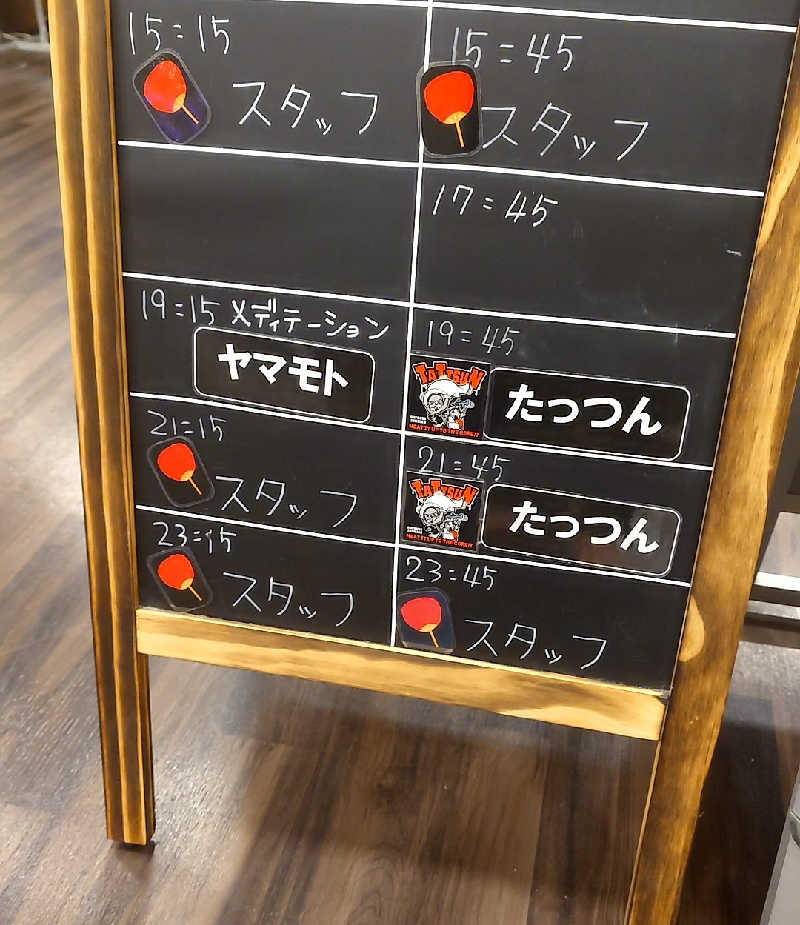 15=15
スタッフ
15=45
スタッフ
17=45
19=15 メディテーション
ヤマモト
19=45
TATTSUN
たっつん
21=15
スタッフ
21=45
TATTSUN
たっつん
23=15
スタッフ
23=45
スタッフ